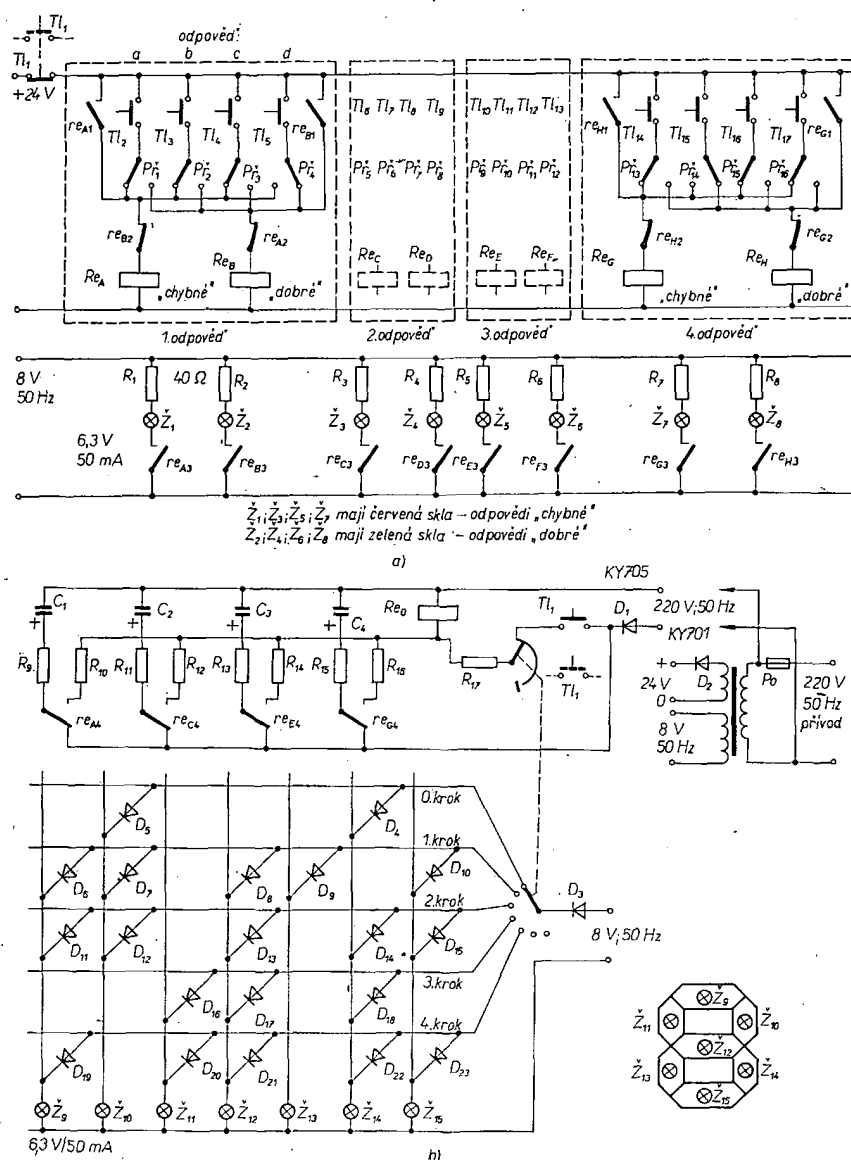 Tl₁
Tl₁
+24 V
odpověď:
a b c d
re_A1 Tl₂ Tl₃ Tl₄ Tl₅ re_B1
Př₁ Př₂ Př₃ Př₄
re_B2 re_A2
Re_A „chybné" Re_B „dobré"
1. odpověď
Tl₆ Tl₇ Tl₈ Tl₉
Př₅ Př₆ Př₇ Př₈
Re_C Re_D
2. odpověď
Tl₁₀ Tl₁₁ Tl₁₂ Tl₁₃
Př₉ Př₁₀ Př₁₁ Př₁₂
Re_E Re_F
3. odpověď
re_H1 Tl₁₄ Tl₁₅ Tl₁₆ Tl₁₇ re_G1
Př₁₃ Př₁₄ Př₁₅ Př₁₆
re_H2 re_G2
Re_G „chybné" Re_H „dobré"
4. odpověď
8 V
50 Hz
R₁ 40 Ω R₂ R₃ R₄ R₅ R₆ R₇ R₈
Ž₁ Ž₂ Ž₃ Ž₄ Ž₅ Ž₆ Ž₇ Ž₈
6,3 V
50 mA
re_A3 re_B3 re_C3 re_D3 re_E3 re_F3 re_G3 re_H3
Ž₁; Ž₃; Ž₅; Ž₇ mají červená skla – odpovědi „chybné"
Ž₂; Ž₄; Ž₆; Ž₈ mají zelená skla – odpovědi „dobré"
a)
C₁ C₂ C₃ C₄ Re₀ Tl₁ D₁
+ + + +
R₉ R₁₀ R₁₁ R₁₂ R₁₃ R₁₄ R₁₅ R₁₆ R₁₇ Tl₁
re_A4 re_C4 re_E4 re_G4
KY705
220 V; 50 Hz
KY701
+ D₂ Po
24 V
0
8 V
50 Hz
220 V
50 Hz
přívod
0. krok
D₅ D₄
1. krok
D₆ D₇ D₈ D₉ D₁₀
2. krok
D₁₁ D₁₂ D₁₃ D₁₄ D₁₅
3. krok
D₁₆ D₁₇ D₁₈
4. krok
D₁₉ D₂₀ D₂₁ D₂₂ D₂₃
D₃
8 V; 50 Hz
Ž₉ Ž₁₀ Ž₁₁ Ž₁₂ Ž₁₃ Ž₁₄ Ž₁₅
6,3 V/50 mA
Ž₉
Ž₁₁ Ž₁₀
Ž₁₂
Ž₁₃ Ž₁₄
Ž₁₅
b)